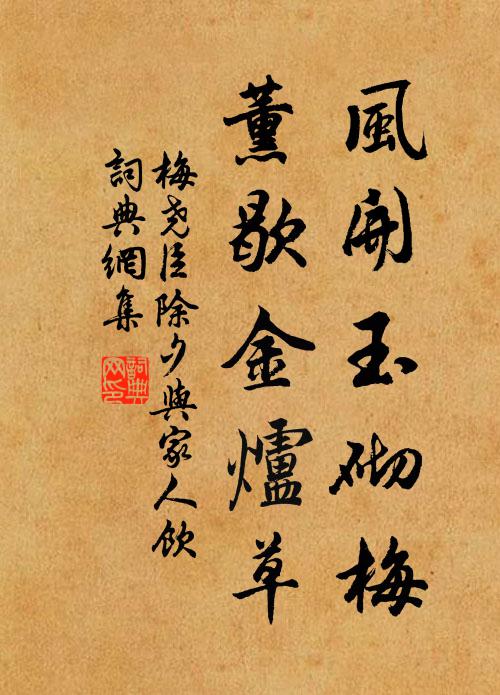 風開玉砌梅
薰歇金爐草
梅尧臣除夕與家人飲
詞典網集
詞典
网印